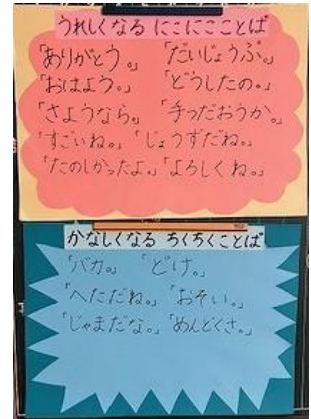 うれしくなる にこにこことば
「ありがとう。」 「だいじょうぶ。」
「おはよう。」 「どうしたの。」
「さようなら。」 「手つだおうか。」
「すごいね。」 「じょうずだね。」
「たのしかったよ。」 「よろしくね。」
かなしくなる ちくちくことば
「バカ。」 「どけ。」
「へただね。」 「おそい。」
「じゃまだな。」 「めんどくさ。」